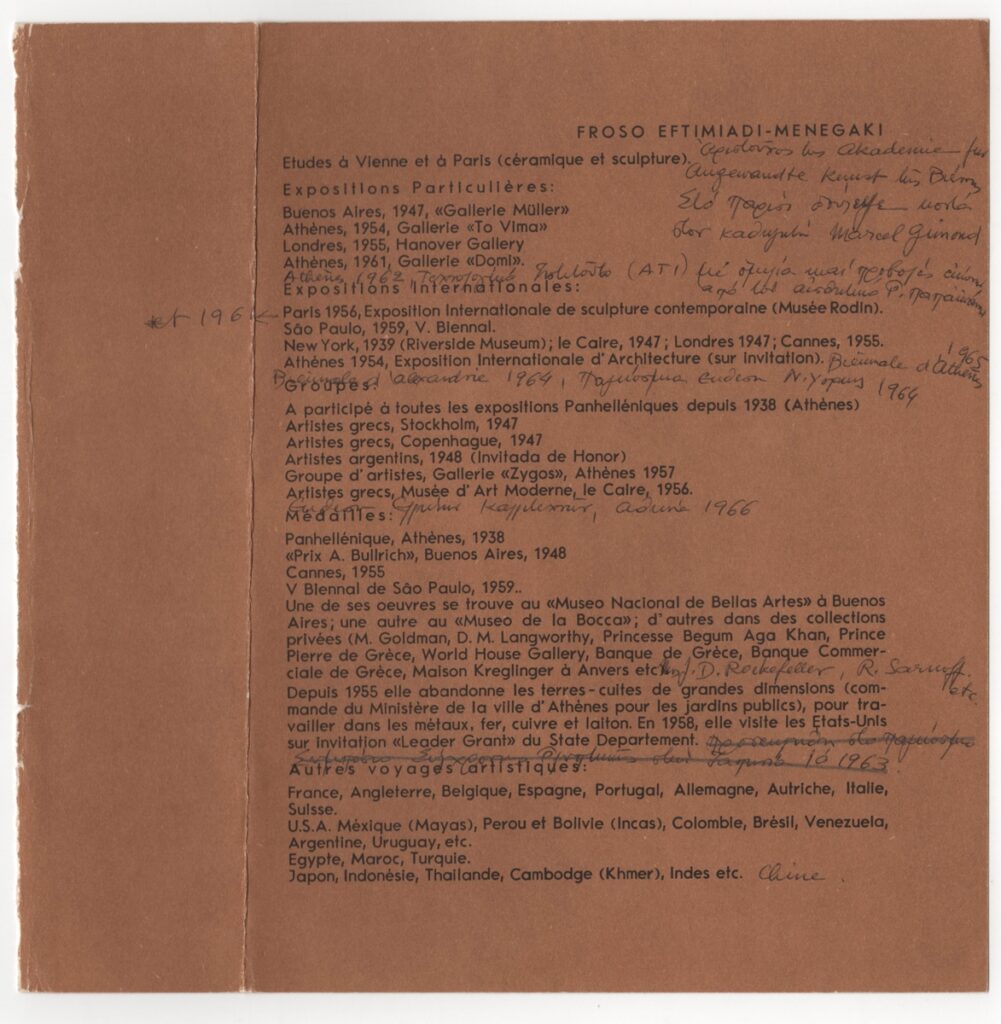 FROSO EFTIMIADI-MENEGAKI
Etudes à Vienne et à Paris (céramique et sculpture). Akademie für
Angewandte Kunst της Βιέννης
Expositions Particulières:
Στο Παρίσι κοντά
Buenos Aires, 1947, «Gallerie Müller»
Athénes, 1954, Gallerie «To Vima»
στον καθηγητή Marcel Gimond
Londres, 1955, Hanover Gallery
Athénes, 1961, Gallerie «Domi».
Athènes 1962 (ATI) Μέ ὁμιλία καί προβολές
ἀπό τόν Ρ.
Expositions Internationales:
et 1964
Paris 1956, Exposition Internationale de sculpture contemporaine (Musée Rodin).
São Paulo, 1959, V. Biennal.
New York, 1939 (Riverside Museum); le Caire, 1947; Londres 1947; Cannes, 1955.
Athénes 1954, Exposition Internationale d'Architecture (sur invitation). Biennale d'Athènes 1965
Biennale d'Alexandrie 1964, Παγκόσμια Ν. Υόρκης 1964
Groupes:
A participé à toutes les expositions Panhelléniques depuis 1938 (Athènes)
Artistes grecs, Stockholm, 1947
Artistes grecs, Copenhague, 1947
Artistes argentins, 1948 (Invitada de Honor)
Groupe d'artistes, Gallerie «Zygos», Athènes 1957
Artistes grecs, Musée d'Art Moderne, le Caire, 1956.
Αθήνα 1966
Médailles:
Panhellénique, Athènes, 1938
«Prix A. Bullrich», Buenos Aires, 1948
Cannes, 1955
V Biennal de São Paulo, 1959..
Une de ses oeuvres se trouve au «Museo Nacional de Bellas Artes» à Buenos
Aires; une autre au «Museo de la Bocca»; d'autres dans des collections
privées (M. Goldman, D. M. Langworthy, Princesse Begum Aga Khan, Prince
Pierre de Grèce, World House Gallery, Banque de Grèce, Banque Commer-
ciale de Grèce, Maison Kreglinger à Anvers etc. D. Rockefeller, R. Sarnoff
etc.
Depuis 1955 elle abandonne les terres-cuites de grandes dimensions (com-
mande du Ministère de la ville d'Athènes pour les jardins publics), pour tra-
vailler dans les métaux, fer, cuivre et laiton. En 1958, elle visite les Etats-Unis
sur invitation «Leader Grant» du State Departement.
1963
Autres voyages artistiques:
France, Angleterre, Belgique, Espagne, Portugal, Allemagne, Autriche, Italie,
Suisse.
U.S.A. Méxique (Mayas), Perou et Bolivie (Incas), Colombie, Brésil, Venezuela,
Argentine, Uruguay, etc.
Egypte, Maroc, Turquie.
Japon, Indonésie, Thailande, Cambodge (Khmer), Indes etc. Chine.